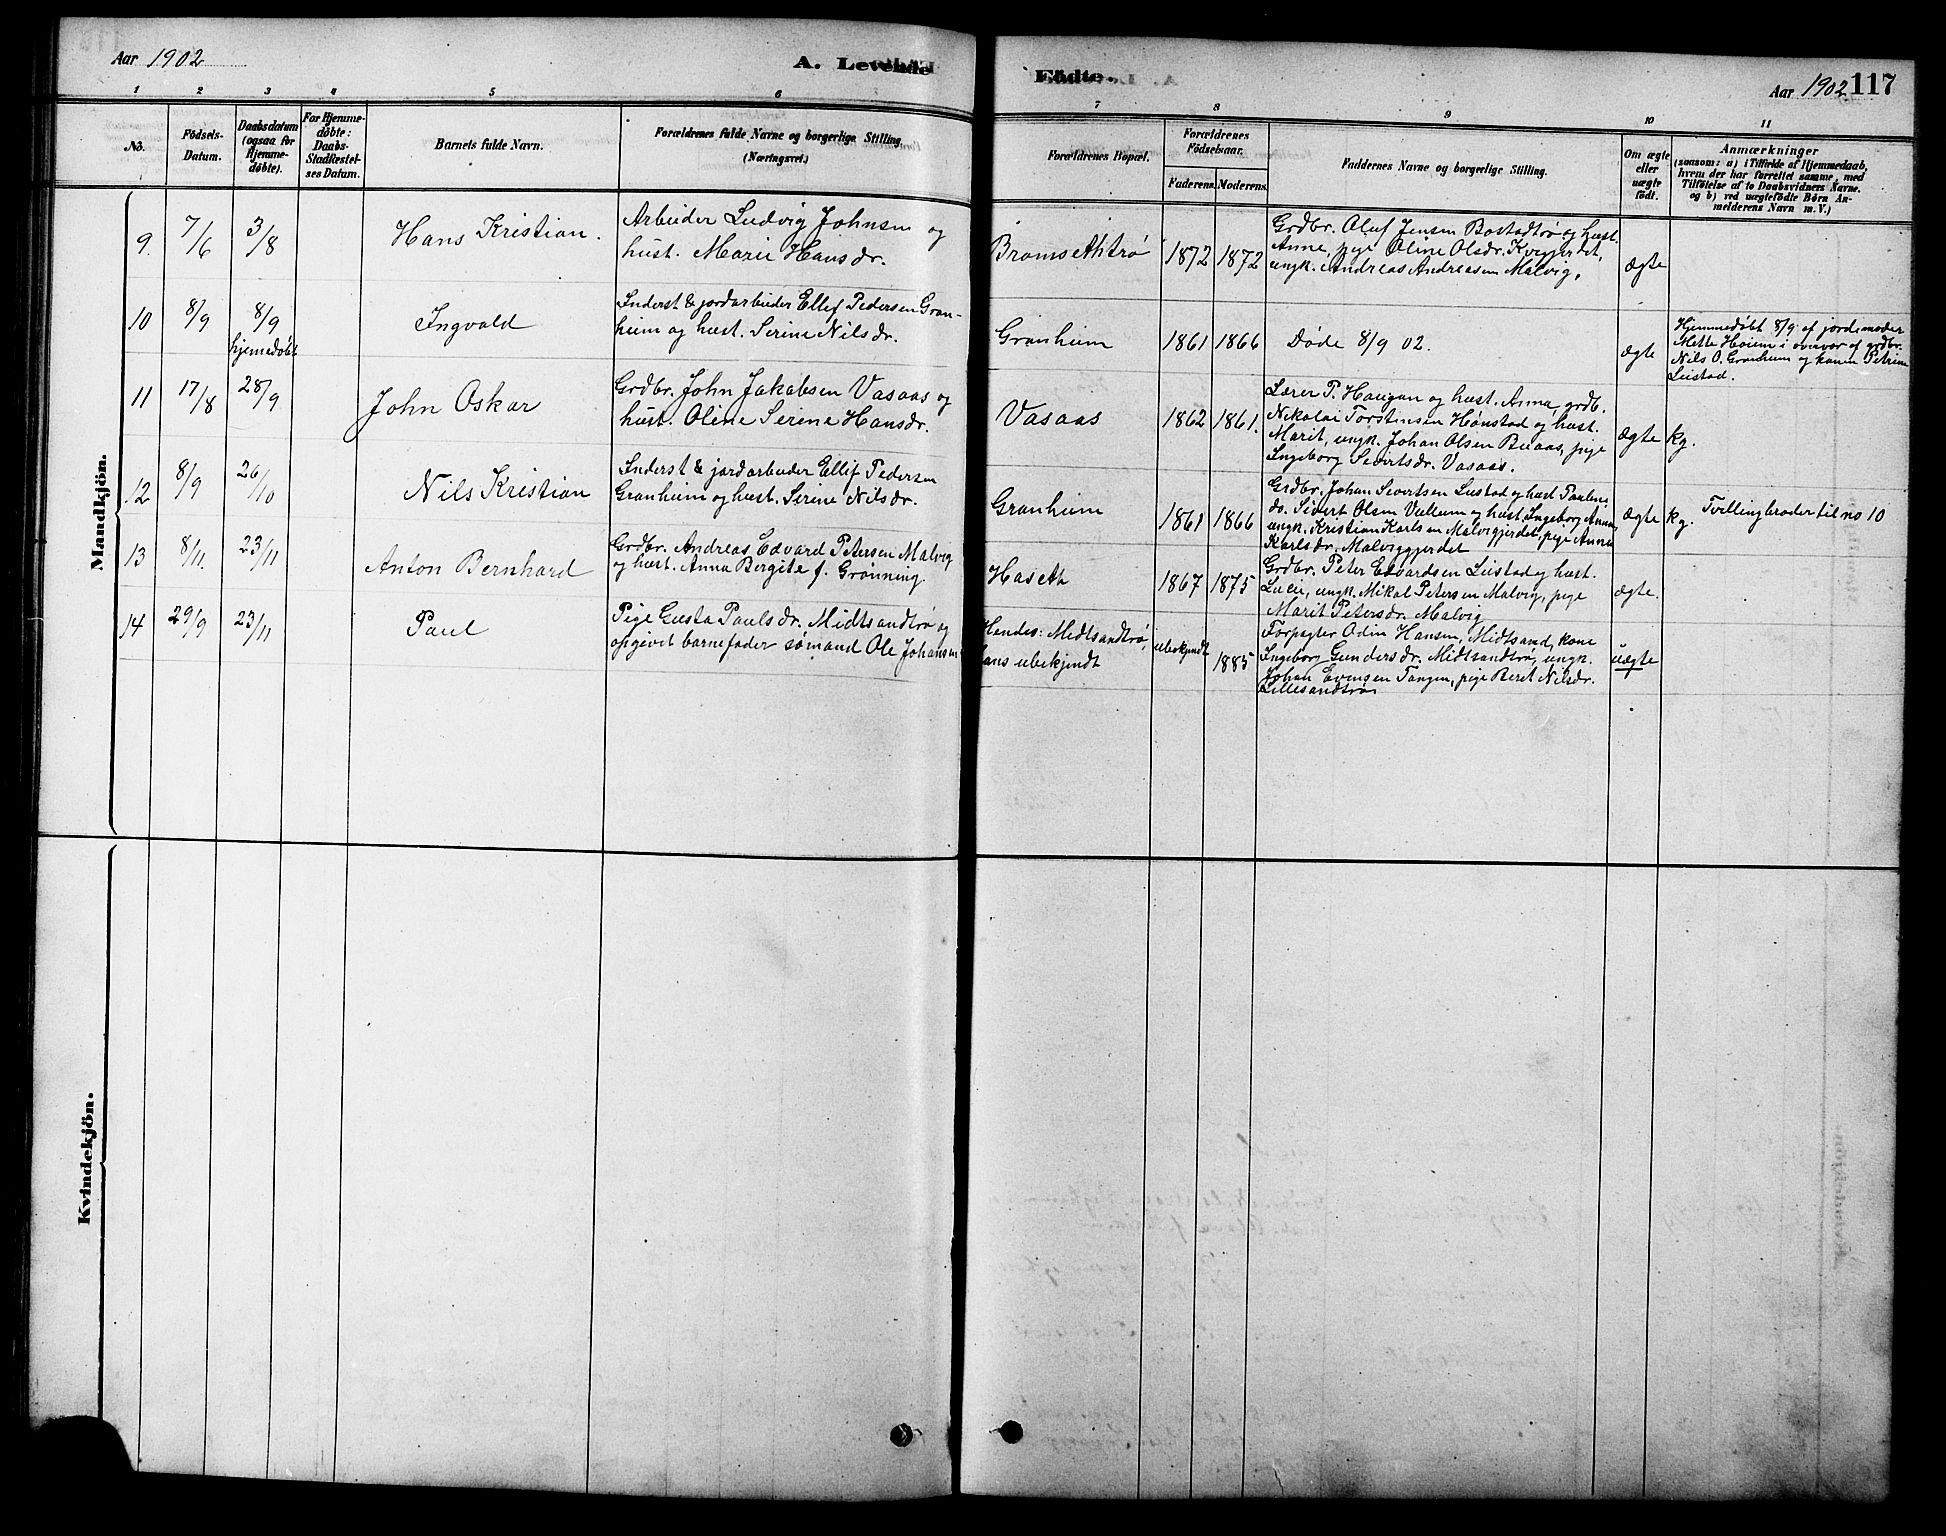 Aar 1902
A. Levende
Födte.
Aar 1902 117
1 2 3 4 5 6 7 8 9 10 11
No.
Födsels-
Datum.
Daabsdatum
(ogsaa for
Hjemme-
døbte).
For Hjemme-
døbte:
Daabs-
Stadfæstel-
ses Datum.
Barnets fulde Navn.
Forældrenes fulde Navne og borgerlige Stilling.
(Næringsvei.)
Forældrenes Bopæl.
Forældrenes
Födselsaar.
Faderens. Moderens.
Faddernes Navne og borgerlige Stilling.
Om ægte
eller
uægte
født.
Anmærkninger
(saasom: a) i Tilfælde af Hjemmedaab,
hvem der har forrettet samme, med
Tilføielse af to Daabsvidners Navne.
og b) ved uægtefödte Börn An-
melderens Navn m. V.)
Mandkjön.
9. 7/6 3/8 Hans Kristian.
Arbeider Ludvig Johnsen og
hust. Marie Hansdr.
Bromsethtrø 1872 1872
Grdbr. Oluf Jensen Bostadtrø og hust.
Anne, pige Oline Olsdr. Kvrgjerdet,
ungk. Andreas Andreasen Malvig,
ægte
10 8/9 8/9
hjemedøbt
Ingvald
Inderst & jordarbeider Ellef Pedersen Gran-
heim og hust. Serine Nilsdr.
Granheim 1861 1866 Døde 8/9 02.
ægte
Hjemmedøbt 8/9 af jordemoder
Mette Hoiem i overvær af grdbr.
Nils O. Granheim og konen Petrine
Leistad.
11 17/8 28/9 John Oskar
Grdbr. John Jakobsen Vasaas og
hust. Oline Serine Hansdr.
Vasaas 1862 1861.
Lærer P. Haugan og hust. Anna, grdb.
Nikolai Torstensen Hønstad og hust.
Marit, ungk. Johan Olsen Buaas, pige
Ingeborg Sivertsdr. Vasaas.
ægte kg.
12 8/9 26/10 Nils Kristian
Inderst & jordarbeider Ellif Pedersen
Granheim og hust. Serine Nilsdr.
Granheim 1861 1866
Grdbr. Johan Sivertsen Leistad og hust Pauline
do. Sivert Olsen Vullum og hust. Ingeborg Anna,
ungk. Kristian Karlsen Malvigjerdet, pige Anna
Karlsdr. Malviggjerdet
ægte kg. Tvillingbroder til no 10
13 8/11. 23/11 Anton Bernhard
Grdbr. Andreas Edvard Petersen Malvig
og hust. Anna Bergite f. Grønning.
Haseth 1867 1875
Grdbr. Peter Edvardsen Leistad og hust.
ungk. Mikal Petersen Malvig, pige
Marit Petersdr. Malvig
ægte.
14 29/9 23/11 Paul
Pige Gusta Paulsdr. Midtsandtrø og
opgivet barnefader sømand Ole Johansen
Hendes: Midtsandtrø,
hans ubekjendt
ubekjendt 1885
Forpagter Odin Hansen, Midtsand, kone
Ingeborg Gundersdr. Midtsandtrø, ungk.
Johan Evensen Tangen, pige Beret Nilsdr.
Lillesandtrø
uægte
Kvindekjön.